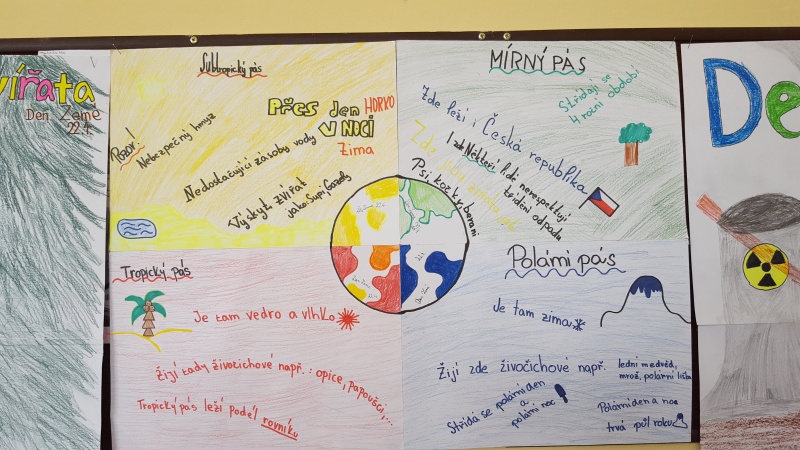 vířata
Den Země
22.4.
Subtropický pás
Přes den HORKO
V NOCI
Zima
Pozor!
Nebezpečný hmyz
Nedostačující zásoby vody
Výskyt zvířat
jako: Supi, Gazely
MÍRNÝ PÁS
Střídají se
4 roční období
Zde leží i Česká republika
Někteří lidé nerespektují
třídění odpadu
Psí
Tropický pás
Je tam vedro a vlhko
Žijí tady živočichové např.: opice, papoušci,...
Tropický pás leží podél rovníku
Polární pás
Je tam zima
Žijí zde živočichové např. lední medvěd,
mrož, polární liška
Střídá se polární den
a
polární noc
Polární den a noc
trvá půl roku
De